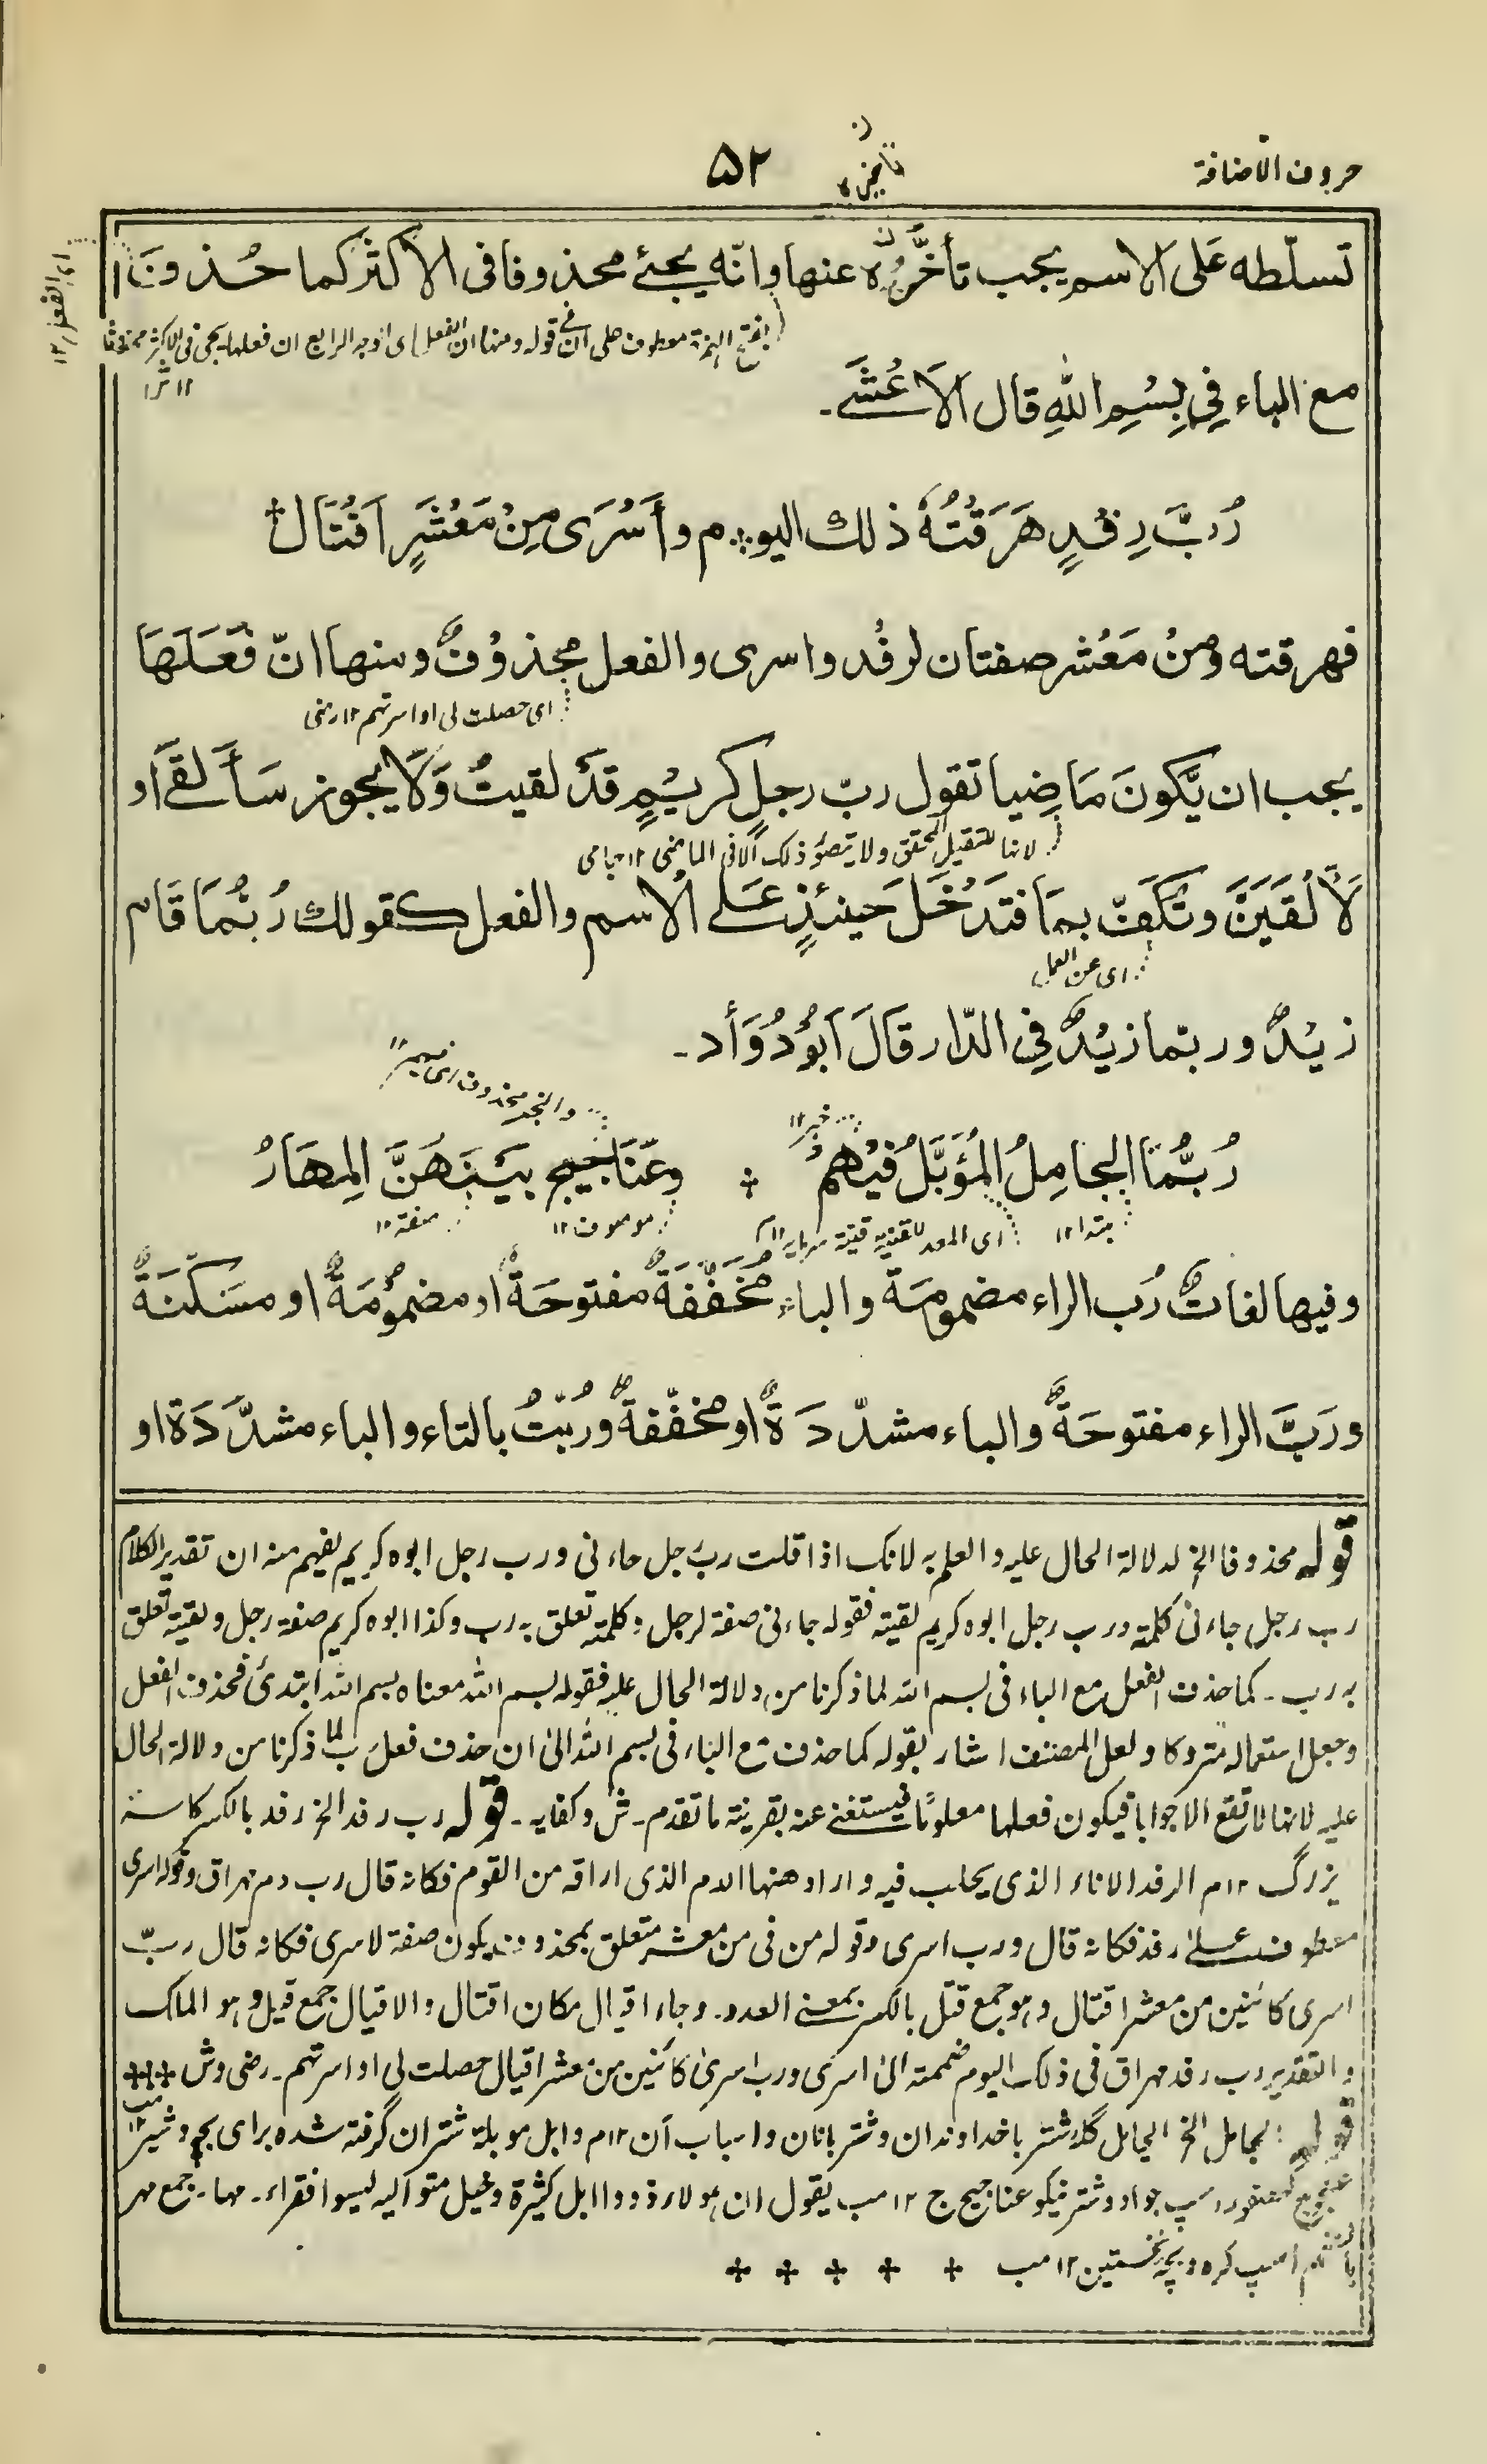 حروف الاضافة
۵۲
تأخيره
ن
تسلّطه عَلى الاسم يجب تأخّرُه عنها وانّه يجئ محذوفا فى الاكثر كما حُذفَ
اى الفعل ١٢
بفتح الهمزة معطوف على انّ فى قوله ومنها ان الفعل اى الوجه الرابع ان فعلها يجى فى الاكثر محذوفا
١٢ ش
مع الباء فِي بِسْمِ اللهِ قال الاَعْشَے۔
رُبَّ رِفْدٍ هَرَقْتُهٗ ذلك اليو ∴ م وأَسْرَى مِنْ مَعْشَرٍ اَقْتَال
فهرقته ومِنْ مَعْشر صفتان لرفْد واسرى والفعل محذوْفٌ ومنها انّ فعْلَهَا
اى حصلت لى او اسرتهم ١٢ رضى
يجب ان يَّكونَ مَاضِيا تقول ربّ رجلٍ كريْمٍ قدْ لقيتُ وَلَا يجوز سَأَلقے او
لانها للتقليل المحقق ولا يتصوّر ذلك الا فى الماضى ١٢ جامى
لَاَلْقَيَنَّ وتُكَفّ بمَا فتَدْخُلَ حينئذٍ عَلے الاسم والفعل كقولك رُبّمَا قَام
اى عن العمل
زيْدٌ وربّما زيْدٌ فِي الدّار قَالَ اَبُوْ دُوَأد۔
والخبر محذوف اى فيهم ١٢
خبر ١٢
رُبّمَا الجامِلُ المُؤَبَّلُ فيْهِمْ ⁘ وعَنَاجيجُ بيْنَهُنَّ المِهَارُ
مبتدا ١٢
اى المعد للقنية
موصوف ١٢
صفة ١٢
وفيها لغاتٌ رُب الراء مضمومَة والباء مُخفَّفَةٌ مفتوحَةٌ او مضمُوْمَةٌ او مسَكّنَةٌ
ورَبَّ الراء مفتوحَةٌ والباء مشدّدَةٌ او مخفّفةٌ ورُبّتُ بالتاء والباء مشدَّدَة او
قوله محذوفا الخ لدلالة الحال عليه والعلم به لانك اذا قلت رب رجل جاءنى ورب رجل ابوه كريم يفهم منه ان تقدير الكلام
رب رجل جاءنى كلمته ورب رجل ابوه كريم لقيته فقوله جاءنى صفة لرجل وكلمته تعلق به رب وكذا ابوه كريم صفة رجل ولقيته تعلق
به رب۔ كما حذف الفعل مع الباء فى بسم الله لما ذكرنا من دلالة الحال عليه فقوله بسم الله معناه بسم الله ابتدئ فحذف الفعل
وجعل استعماله متروكا ولعل المصنف اشار بقوله كما حذف مع الباء فى بسم الله الى ان حذف فعل رب لما ذكرنا من دلالة الحال
عليه لانها لا تقع الا جوابا فيكون فعلها معلومًا فيستغنے عنه بقرينة ما تقدم۔ ش وكفايه۔ قوله رب رفد الخ رفد بالكسر كاسۂ
بزرگ ١٢ م الرفد الاناء الذى يحلب فيه واراد ههنا الدم الذى اراقه من القوم فكانه قال رب دم مهراق وقوله اسرى
معطوف علے رفد فكانه قال ورب اسرى وقوله من فى من معشر متعلق بمحذوف يكون صفة لاسرى فكانه قال ربّ
اسرى كائنين من معشر اقتال وهو جمع قتل بالكسر بمعنے العدو۔ وجاء اقيال مكان اقتال والاقيال جمع قيل وهو الملك
والتقدير رب رفد مهراق فى ذلك اليوم ضممته الى اسرى ورب اسرى كائنين من معشر اقيال حصلت لى او اسرتهم۔ رضى وش
قوله الجامل الخ الجامل گلۂ شتر با خداوندان وشتربانان واسباب آن ١٢ م وابل موبلة شتران گرفته شده برای بچه وشير ١٢ مب
عنجوج كعصفور اسپ جواد وشتر نيكو عناجيج ج ١٢ مب يقول ان هولاء ذووا ابل كثيرة وخيل متوالية ليسوا فقراء۔ مهار جمع مهر
بالضم اسپ كره وبچۂ نخستين ١٢ مب